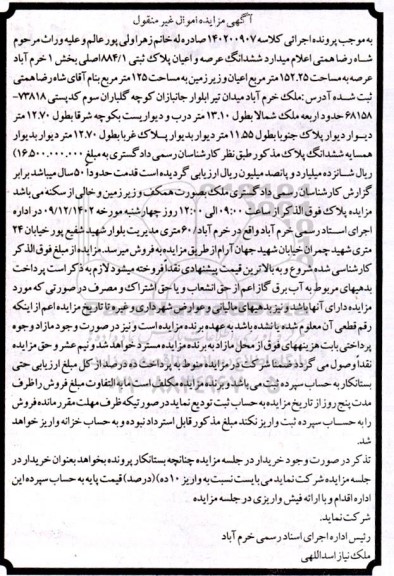 آگهی مزایده اموال غیر منقول
به موجب پرونده اجرائی کلاسه ۱۴۰۲۰۰۹۰۷ صادره له خانم زهرا ولی پور عالم و علیه وراث مرحوم
شاه رضا همتی اعلام میدارد ششدانگ عرصه و اعیان پلاک ثبتی ۸۸۴/۱ اصلی بخش ۱ خرم آباد
عرصه به مساحت ۱۵۲.۲۵ متر مربع اعیان وزیر زمین به مساحت ۱۲۵ متر مربع بنام آقای شاه رضا همتی
ثبت شده آدرس: ملک خرم آباد میدان تیر ابلوار جانبازان کوچه گلباران سوم کدپستی ۷۳۸۱۸-
۶۸۱۵۸ حدود اربعه ملک شمالا بطول ۱۳.۱۰ متر درب و دیواریست بکوچه شرقا بطول ۱۲.۷۰ متر
دیوار دیوار پلاک جنوبا بطول ۱۱.۵۵ متر دیوار بدیوار پلاک غربا بطول ۱۲.۷۰ متر دیوار بدیوار
همسایه ششدانگ پلاک مذکور طبق نظر کارشناسان رسمی دادگستری به مبلغ ۱۶.۵۰۰.۰۰۰.۰۰۰)
ریال شانزده میلیارد و پانصد میلیون ریال ارزیابی گردیده است قدمت حدودا ۵۰ سال میباشد برابر
گزارش کارشناسان رسمی دادگستری ملک بصورت همکف و زیر زمین و خالی از سکنه می باشد
مزایده پلاک فوق الذکر از ساعت ۰۹:۰۰ الی ۱۲:۰۰ روز چهارشنبه مورخه ۰۹/۱۲/۱۴۰۲ در اداره
اجرای اسناد رسمی خرم آباد واقع در خرم آباد / ۶۰ متری مدیریت بلوار شهید شفیع پور خیابان ۲۴
متری شهید چمران خیابان شهید جهان آرام از طریق مزایده به فروش میرسد. مزایده از مبلغ فوق الذکر
کارشناسی شده شروع و به بالاترین قیمت پیشنهادی نقدا فروخته میشود لازم به ذکر است پرداخت
بدهیهای مربوط به آب برق گاز اعم از حق انشعاب و یا حق اشتراک و مصرف در صورتی که مورد
مزایده دارای آنها باشد و نیز بدهیهای مالیاتی و عوارض شهرداری و غیره تا تاریخ مزایده اعم از اینکه
رقم قطعی آن معلوم شده یا نشده باشد به عهده برنده مزایده است و نیز در صورت وجود مازاد وجوه
پرداختی بابت هزینههای فوق از محل مازاد به برنده مزایده مسترد خواهد شد و نیم عشر و حق مزایده
نقدا وصول می گردد ضمنا شرکت در مزایده منوط به پرداخت ده درصد از کل مبلغ ارزیابی حتی
بستانکار به حساب سپرده ثبت می باشد و برنده مزایده مکلف است مابه التفاوت مبلغ فروش را ظرف
مدت پنج روز از تاریخ مزایده به حساب ثبت تودیع نماید در صورتیکه ظرف مهلت مقرر مانده فروش
را به حساب سپرده ثبت واریز نکند مبلغ مذکور قابل استرداد نبوده و به حساب خزانه واریز خواهد
شد.
تذکر در صورت وجود خریدار در جلسه مزایده چنانچه بستانکار پرونده بخواهد بعنوان خریدار در
جلسه مزایده شرکت نماید می بایست نسبت به واریز ۱۰ ده) (درصد) قیمت پایه به حساب سپرده این
اداره اقدام و با ارائه فیش واریزی در جلسه مزایده
شرکت نماید.
رئیس اداره اجرای اسناد رسمی خرم آباد
ملک نیاز اسداللهی